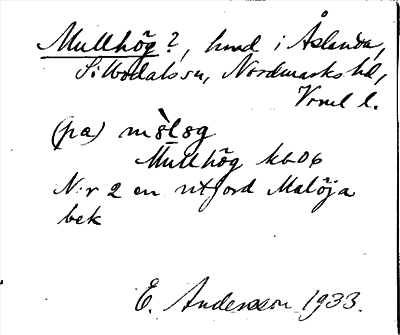 Mullhög?, hmd i Åslanda,
Sillbodals sn, Nordmarks hd,
Vrml l.
(pa) mòlog
Mullhög kb 06
Nr 2 en utjord Malöja
bek
E. Andersson 1933.